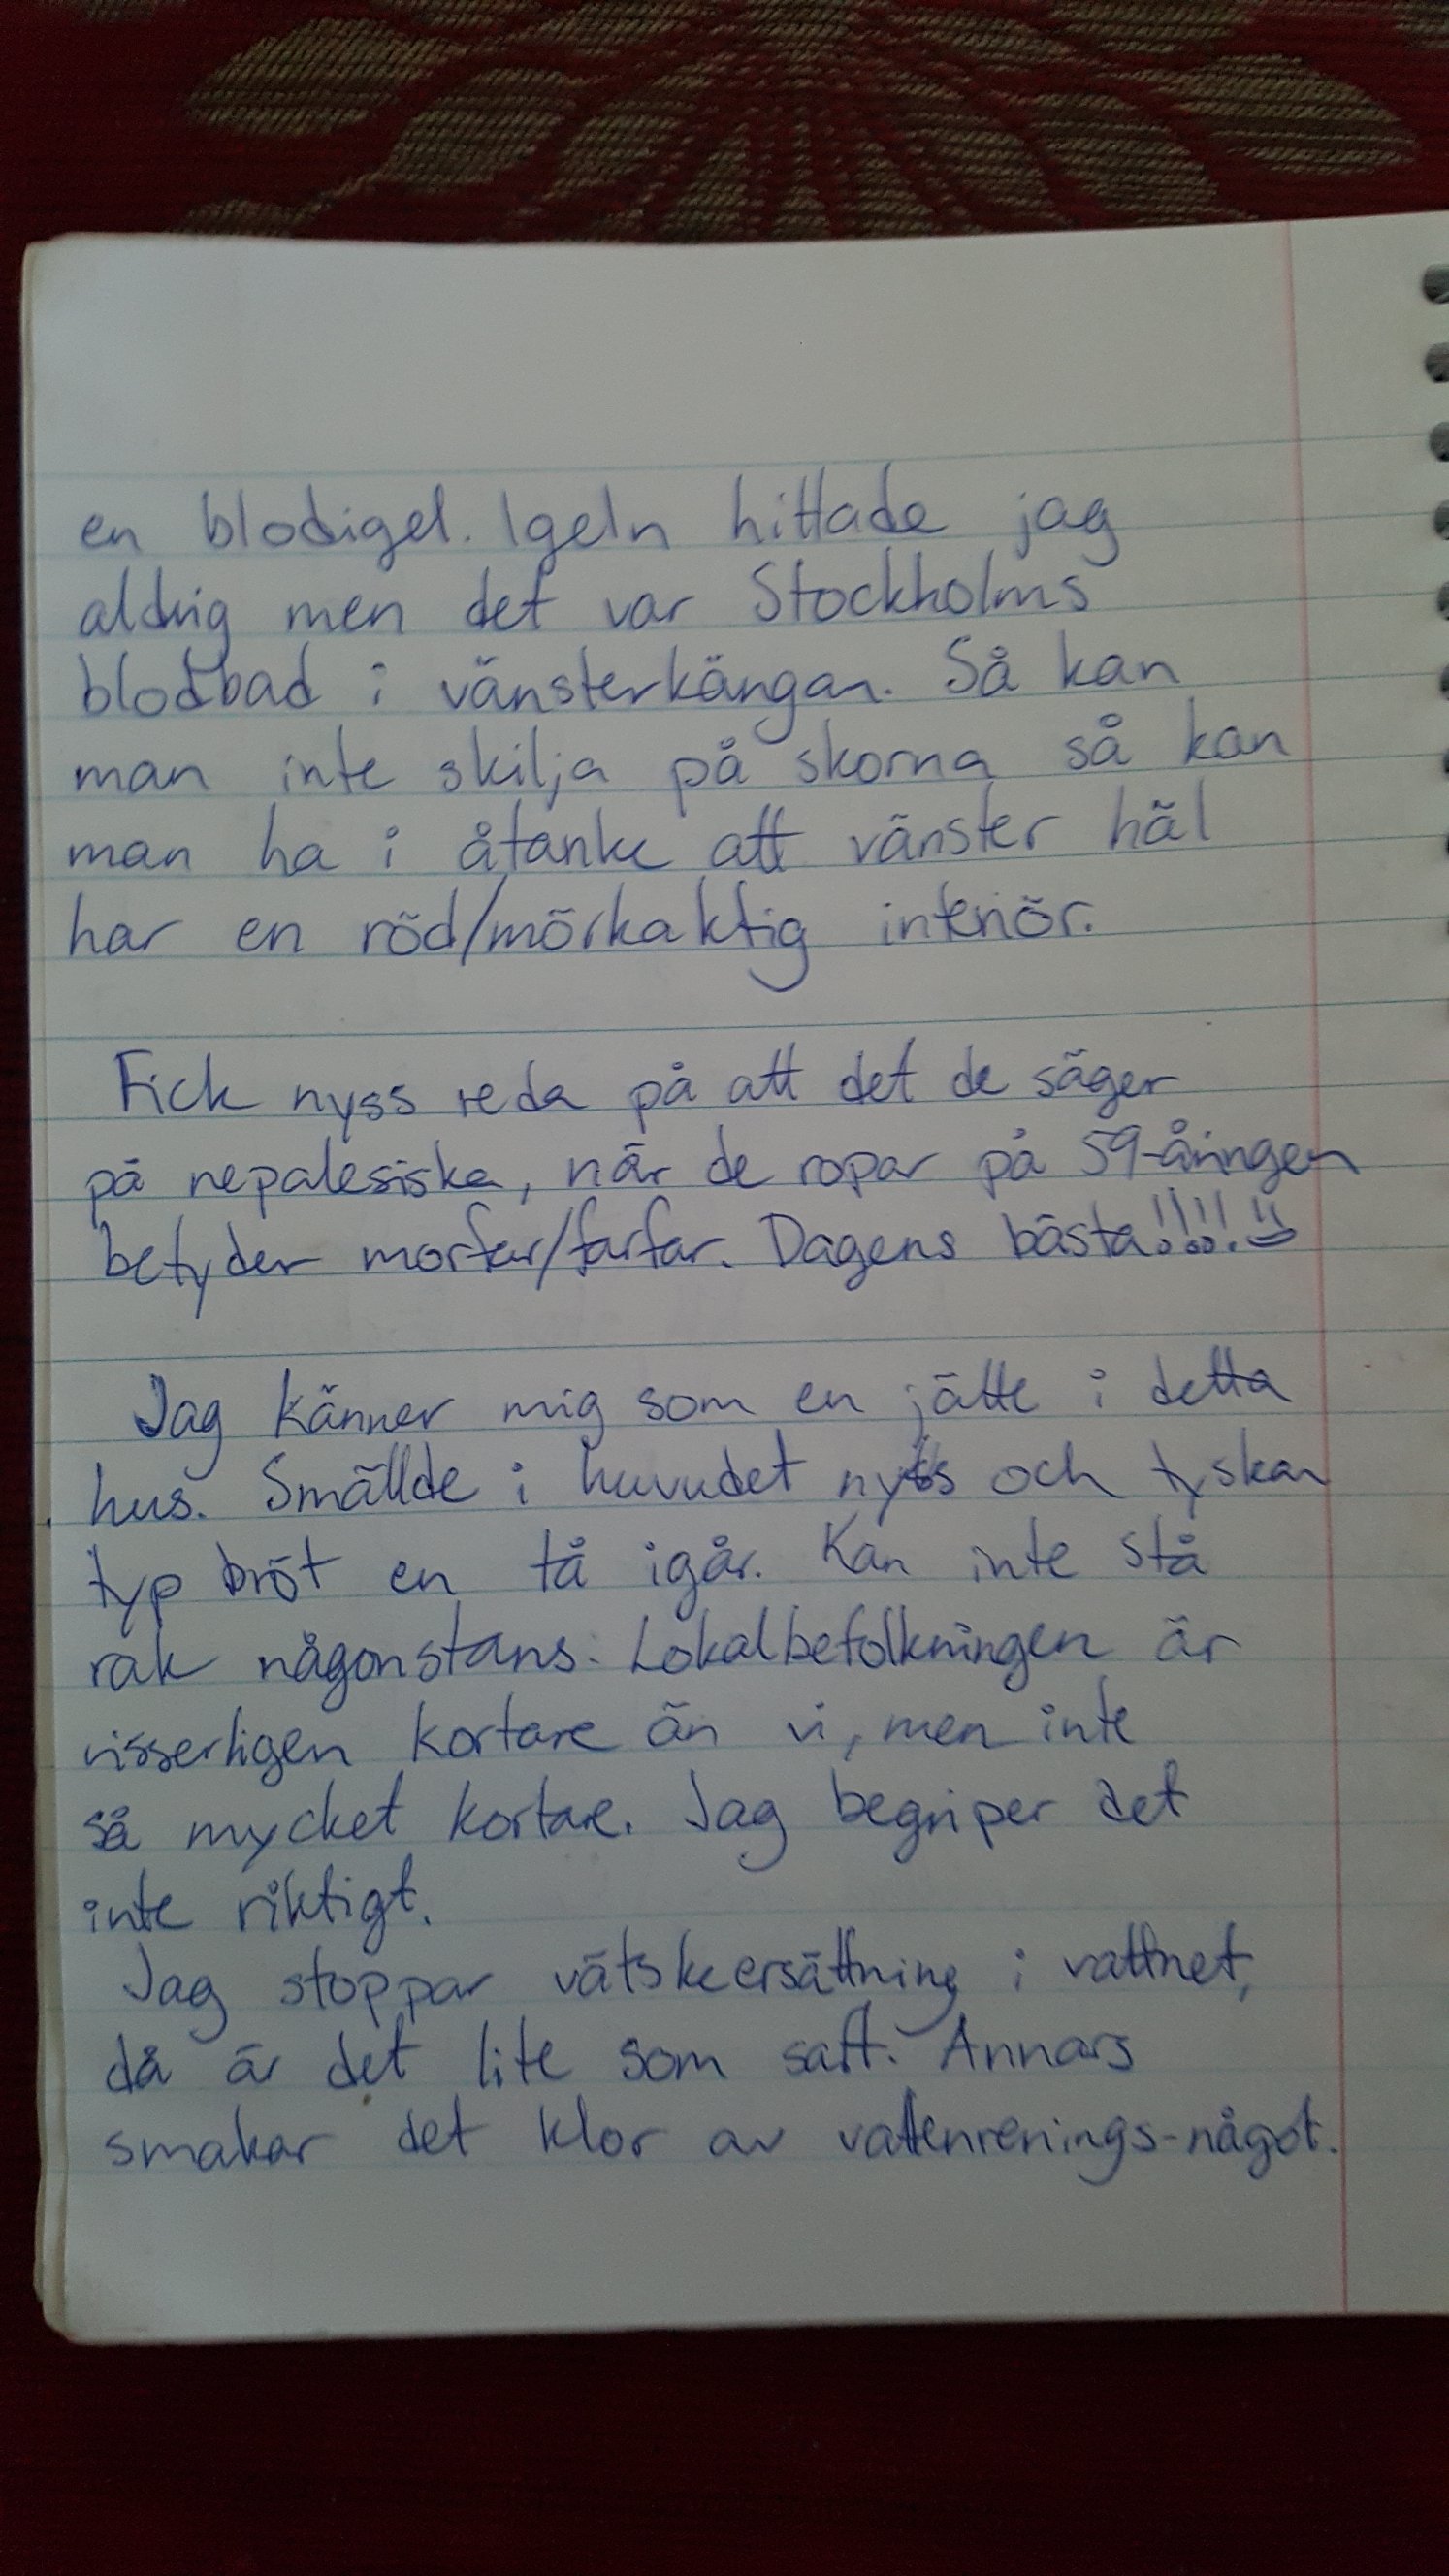 en blodigel. Igeln hittade jag
aldrig men det var Stockholms
blodbad i vänsterkängan. Så kan
man inte skilja på skorna så kan
man ha i åtanke att vänster häl
har en röd/mörkaktig interiör.
Fick nyss reda på att det de säger
på nepalesiska, när de ropar på 59-åringen
betyder morfar/farfar. Dagens bästa!!!! :)
Jag känner mig som en jätte i detta
hus. Smällde i huvudet nyss och tyskan
typ bröt en tå igår. Kan inte stå
rak någonstans. Lokalbefolkningen är
visserligen kortare än vi, men inte
så mycket kortare. Jag begriper det
inte riktigt.
Jag stoppar vätskeersättning i vattnet,
då är det lite som saft. Annars
smakar det klor av vattenrenings-något.